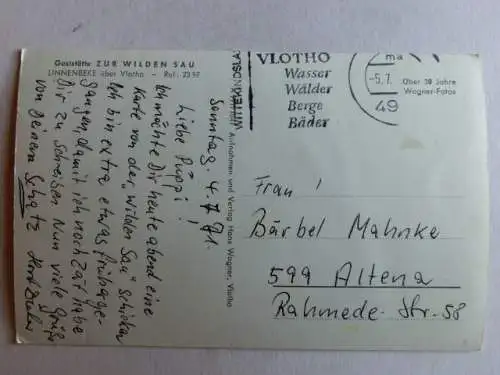 Gaststätte ZUR WILDEN SAU
LINNENBEKE über Vlotho - Ruf: 2252
Sonntag. 4.7.71.
Liebe Puppi!
Ich möchte Dir heute abend eine
Karte von der "Wilden Sau" schicken
Ich bin extra etwas früh gegangen
gangen, damit ich noch Zeit habe
Dir zu schreiben Nun viele Grüße
von Deinem Schatz
Aufnahmen und Verlag Hans Wagner, Vlotho
VLOTHO
Wasser
Wälder
Berge
Bäder
-5.7.
49
Über 30 Jahre
Wagner-Fotos
Frau!
Bärbel Mahnke
599 Altena
Rahmede-Str-58